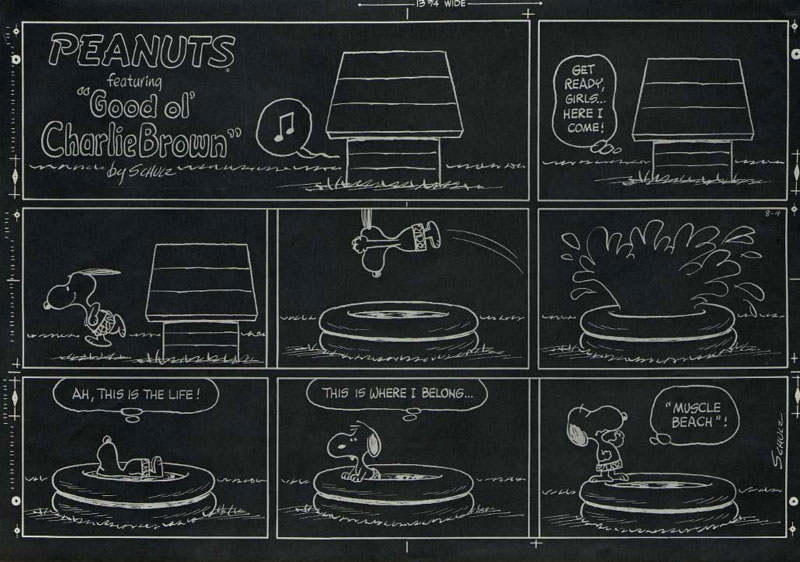 13 3/4 WIDE
PEANUTS®
featuring
"Good ol'
Charlie Brown"
by SCHULZ
GET
READY,
GIRLS...
HERE I
COME!
8-4
AH, THIS IS THE LIFE!
THIS IS WHERE I BELONG...
"MUSCLE
BEACH"!
SCHULZ